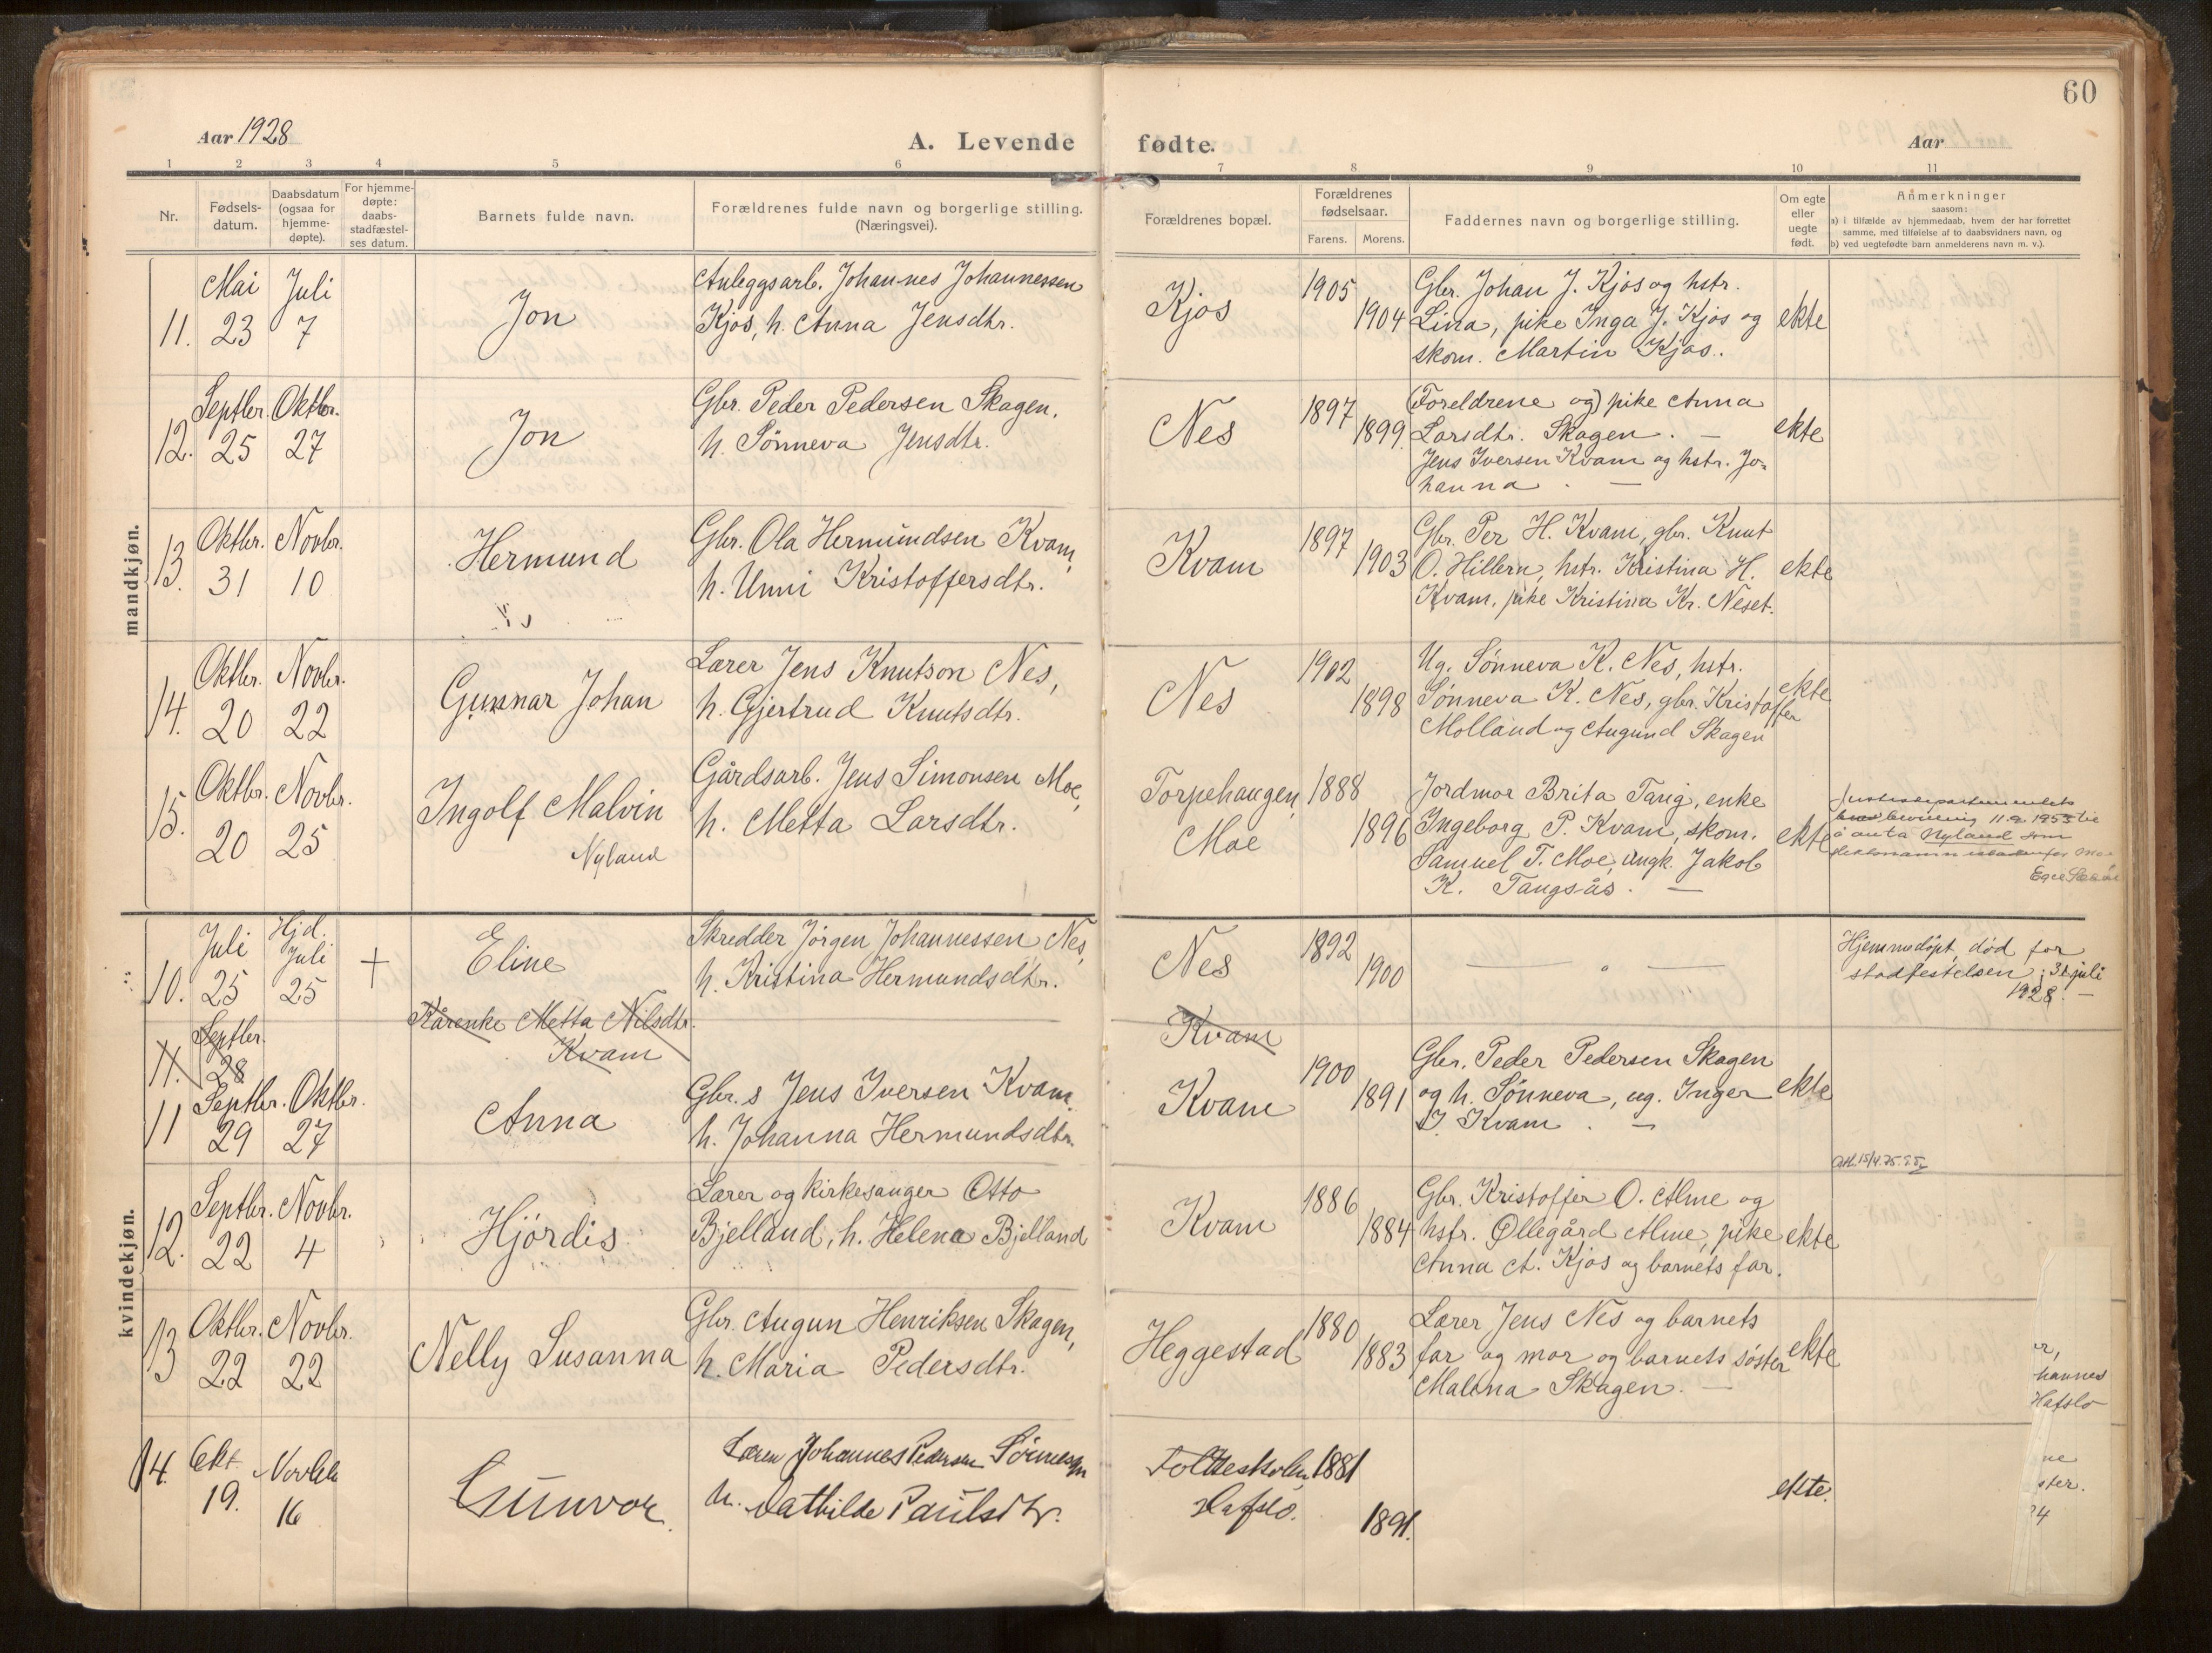 60
Aar 1928
A. Levende fødte.
Aar
1 2 3 4 5 6 7 8 9 10 11
Nr.
Fødsels-
datum.
Daabsdatum
(ogsaa for
hjemme-
døpte).
For hjemme-
døpte:
daabs-
stadfæstel-
ses datum.
Barnets fulde navn.
Forældrenes fulde navn og borgerlige stilling.
(Næringsvei).
Forældrenes bopæl.
Forældrenes
fødselsaar.
Farens. Morens.
Faddernes navn og borgerlige stilling.
Om egte
eller
uegte
født.
Anmerkninger
saasom:
a) i tilfælde av hjemmedaab, hvem der har forrettet
samme, med tilføielse af to daabsvidners navn, og
b) ved uegtefødte barn anmelderens navn m. v.).
mandkjøn.
11.
Mai
23
Juli
7
Jon
Anleggsarb. Johannes Johannessen
Kjos, h. Anna Jensdtr.
Kjos
1905
1904
Gbr. Johan J. Kjos og hstr.
Lina, pike Inga J. Kjos og
skom. Martin Kjos.
ekte
12.
Septbr.
25
Oktbr.
27
Jon
Gbr. Peder Pedersen Skagen,
h. Sønneva Jensdtr.
Nes
1897
1899.
(Foreldrene og) pike Anna
Larsdtr. Skagen. —
Jens Iversen Kvam og hstr. Jo-
hanna. —
ekte
13.
Oktbr.
31
Novbr.
10
Hermund
Gbr. Ola Hermundsen Kvam,
h. Unni Kristoffersdtr.
Kvam
1897
1903
Gbr. Per H. Kvam, gbr. Knut
O. Hillern, hstr. Kristina H.
Kvam, pike Kristina Kr. Neset.
ekte
14.
Oktbr.
20
Novbr.
22
Gunnar Johan
Lærer Jens Knutson Nes,
h. Gjertrud Knutsdtr.
Nes
1902
1898
Ug. Sønneva K. Nes, hstr.
Sønneva K. Nes, gbr. Kristoffer
Molland og Augund Skagen
ekte
15.
Oktbr.
20
Novbr.
25
Ingolf Malvin
Nyland
Gårdsarb. Jens Simonsen Moe,
h. Metta Larsdtr.
Torpehaugen,
Moe
1888
1896
Jordmor Brita Tang, enke
Ingeborg P. Kvam, skom.
Samuel T. Moe, ungk. Jakob
K. Tangsås. —
ekte
Justisdepartementets
bevilling 11.2.1955 til
å anta Nyland som
kvindekjøn.
10.
Juli
25
Hjd.
Juli
25
+
Eline
Skredder Jørgen Johannessen Nes,
h. Kristina Hermundsdtr.
Nes
1892
1900
— " —
Hjemmedøpt, død før
stadfestelsen, 31 juli
1928. —
11.
Septbr.
28
Kårenke Metta Nilsdtr.
Kvam
Kvam
11
Septbr.
29
Oktbr.
27
Anna
Gbr. s Jens Iversen Kvam,
h. Johanna Hermundsdtr.
Kvam
1900
1891
Gbr. Peder Pedersen Skagen
og h. Sønneva, ug. Inger
I. Kvam. —
ekte
12.
Septbr.
22
Novbr.
4
Hjørdis
Lærer og kirkesanger Otto
Bjelland, h. Helena Bjelland
Kvam
1886
1884
Gbr. Kristoffer O. Alme og
hstr. Øllegård Alme, pike
Anna A. Kjos og barnets far.
ekte
13
Oktbr.
22
Novbr.
22
Nelly Susanna
Gbr. Augun Henriksen Skagen,
h. Maria Pedersdtr.
Heggestad
1880
1883
Lærer Jens Nes og barnets
far og mor og barnets søster
Malena Skagen. —
ekte
14.
Okt
19.
Novbr
16
Gunvor.
Lærer Johannes Pedersen
h. Mathilde Paulsdtr.
Hafslo.
1881
1891.
ekte.
r,
hannes
Hafslo
ne
ster.
24